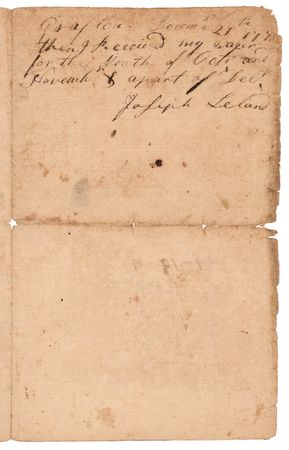 Grafton Decemr 21th 177
then Received my wages
for the Month of Octr and
Novembr & apart of Decr
Joseph Leland